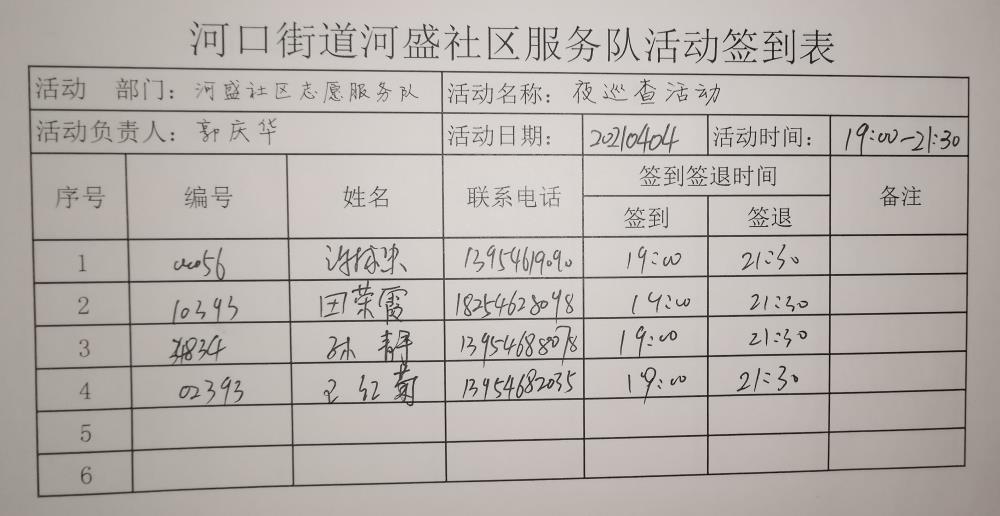 河口街道河盛社区服务队活动签到表
活动 部门: 河盛社区志愿服务队 活动名称: 夜巡查活动
活动负责人: 郭庆华 活动日期: 20210404 活动时间: 19:00-21:30
序号 编号 姓名 联系电话 签到签退时间 备注
签到 签退
1 13954619090 19:00 21:30
2 10393 田荣霞 18254628098 19:00 21:30
3 孙静 13954688078 19:00 21:30
4 02393 王红菊 13954682035 19:00 21:30
5
6